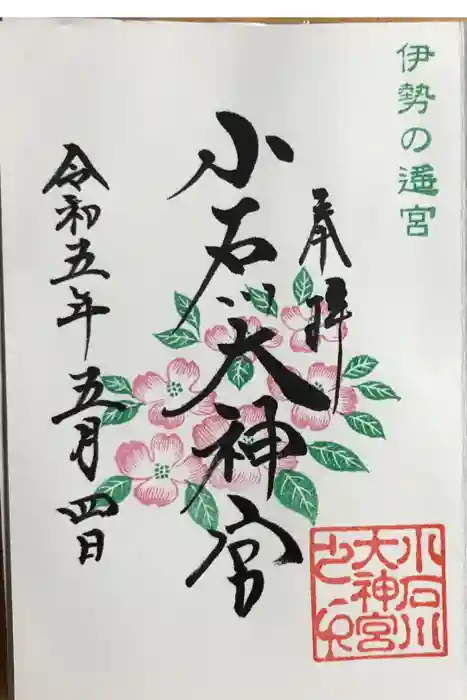 伊勢の遥宮
奉拝
小石川大神宮
令和五年五月四日
小石川
大神宮